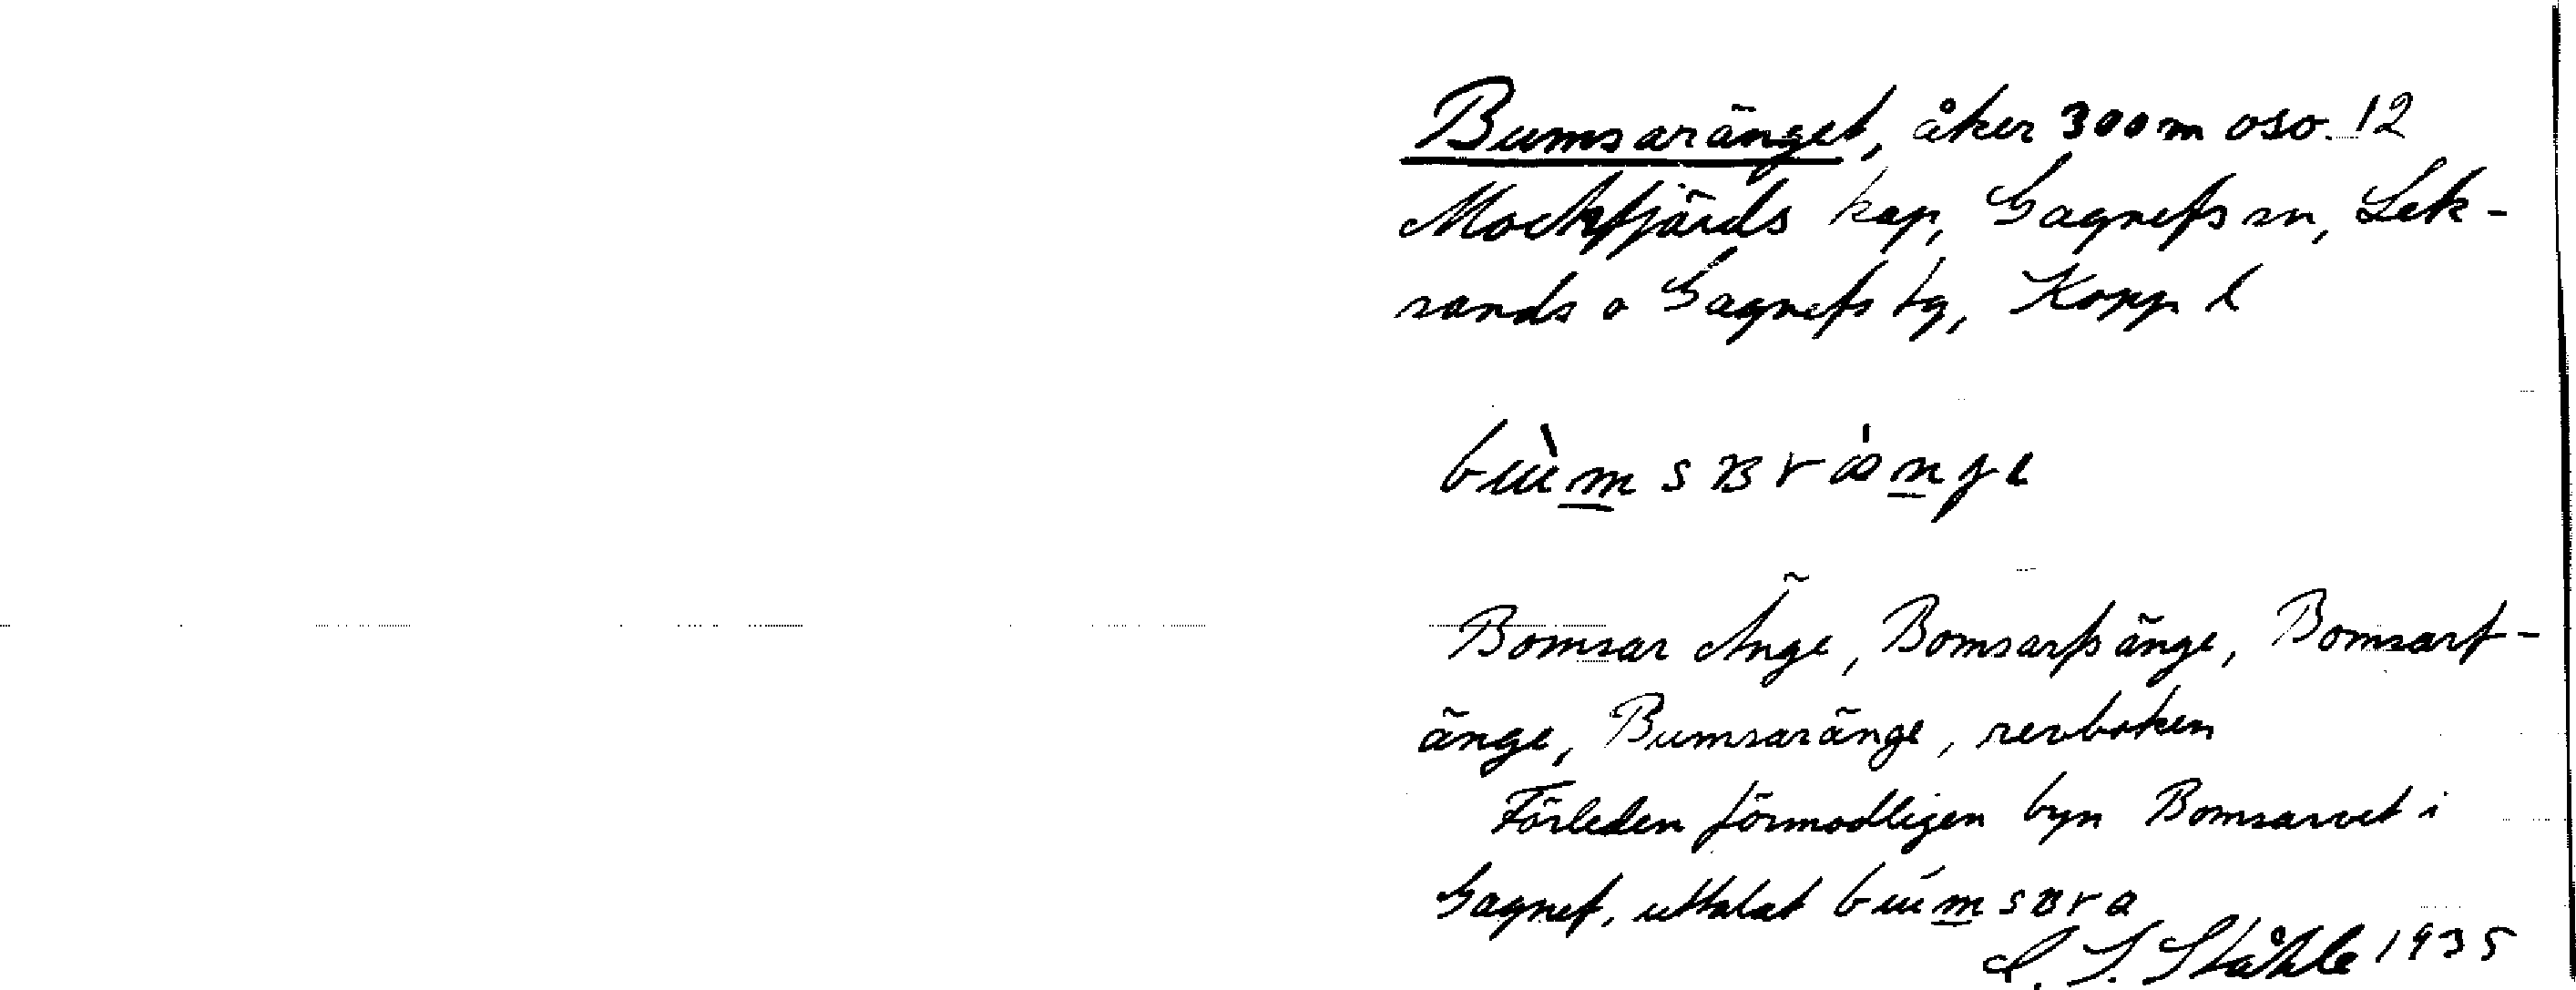 Bumsaränget, åker 300 m oso. 12
Mockfjärds kap, Gagnefs sn, Lek-
sands o Gagnefs tg, Kopp l
Bomsar Änge, Bomsarfsänge, Bomsarf-
änge, Bumsaränge, revboken
Förleden förmodligen byn Bomsarvet i
Gagnef, uttalat
C. I. Ståhle 1935